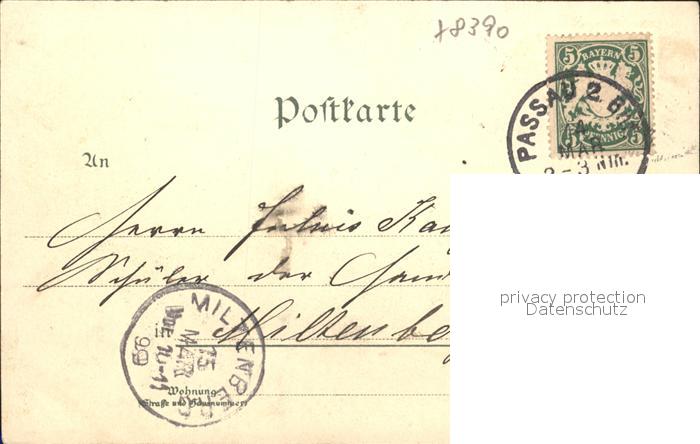 78390
5 BAYERN 5
5 PFENNIG 5
PASSAU 2
MAR
2-3 Nm.
Postkarte
An
Herrn Julius
Schüler der
Miltenberg
privacy protection
Datenschutz
MILTENBERG
15
MAR
99
in
Wohnung
(Straße und Hausnummer)